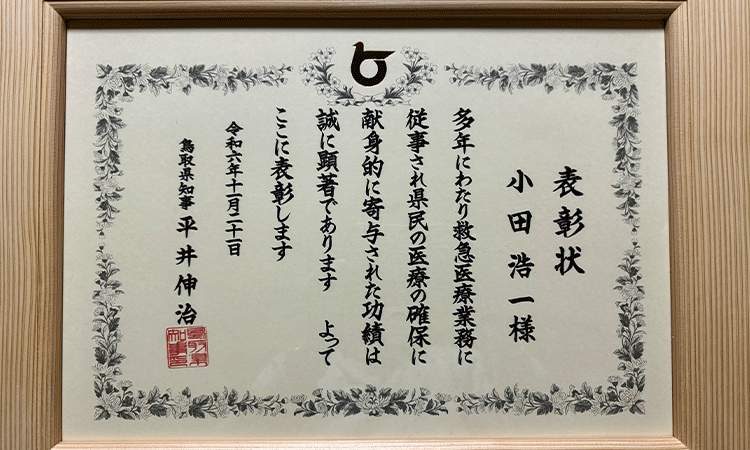 表彰状
小田浩一様
多年にわたり救急医療業務に
従事され県民の医療の確保に
献身的に寄与された功績は
誠に顕著であります よって
ここに表彰します
令和六年十一月二十一日
鳥取県知事 平井伸治